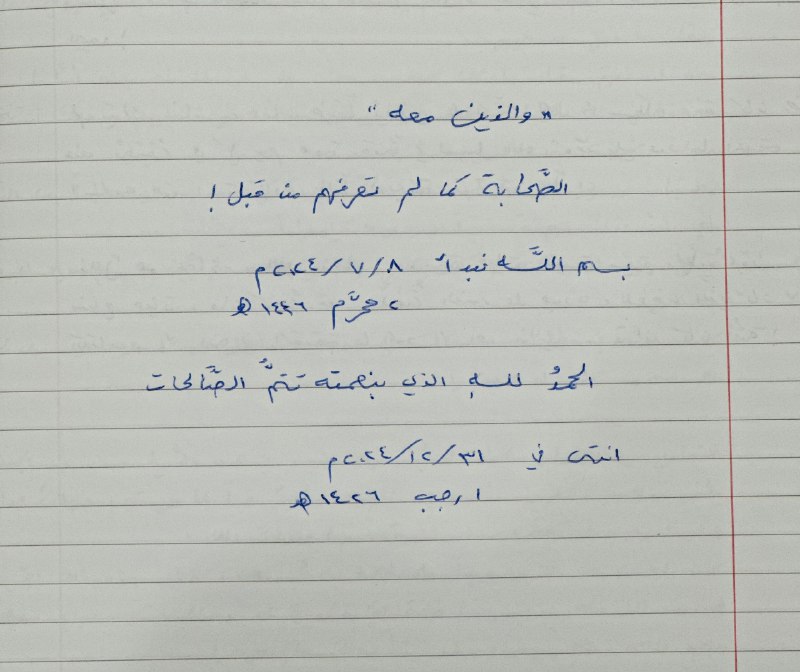 "والذين معه"
الصَّحابة كما لم تعرفهم من قبل!
بسم اللَّه نبدأ ٨/٧/٢٠٢٤م
٢ محرَّم ١٤٤٦هـ
الحمدُ للهِ الذي بنعمته تتمُّ الصَّالحات
انتهى في ٣١/١٢/٢٠٢٤م
١ رجب ١٤٤٦هـ